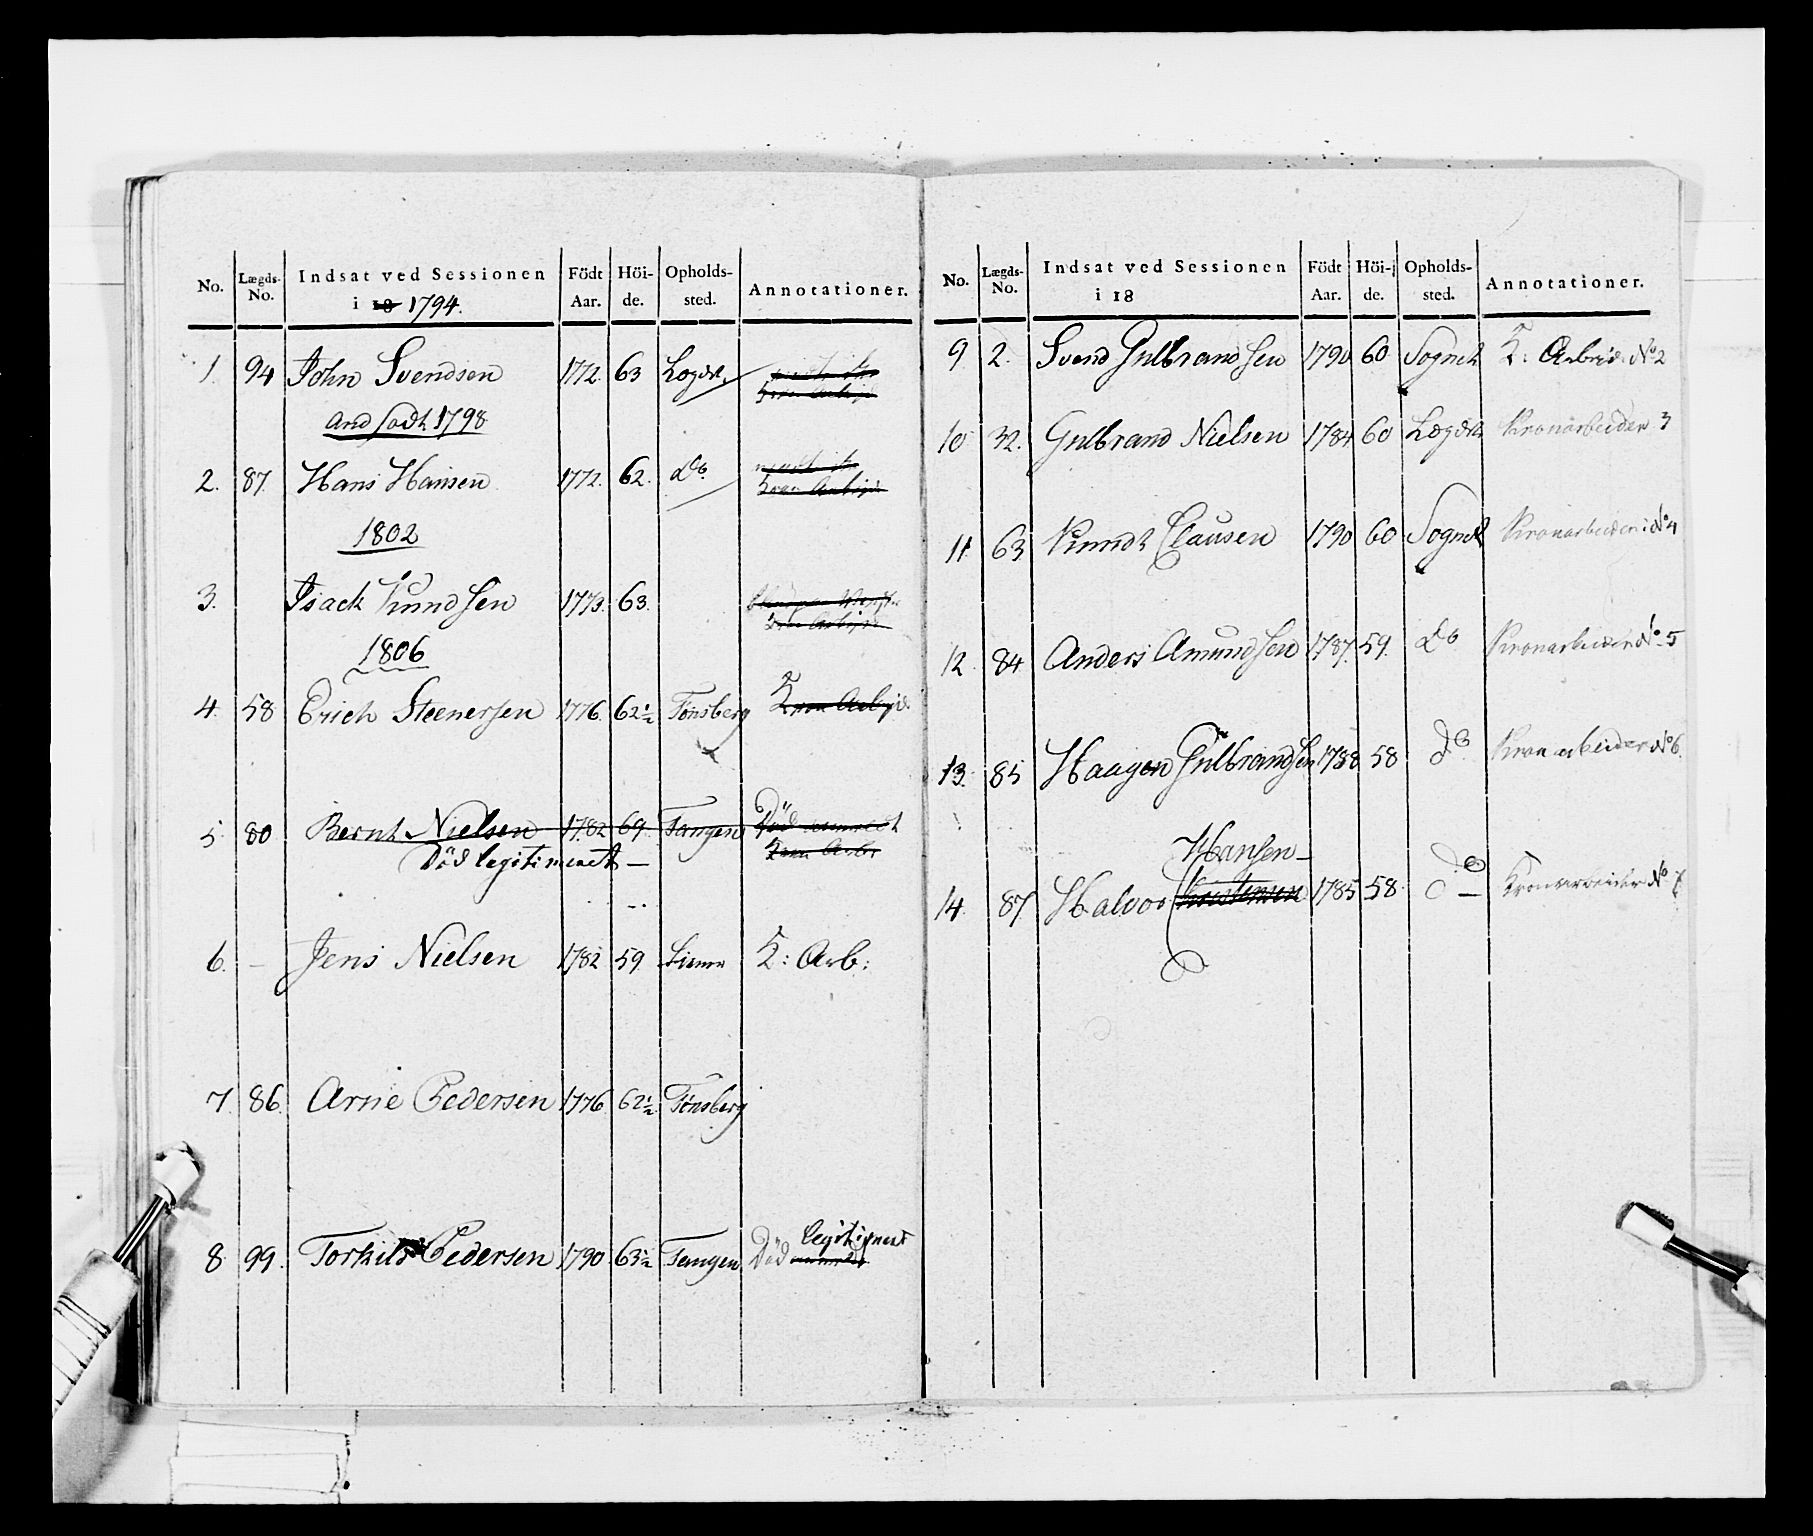 No. Lægds-No. Indsat ved Sessionen i 18 1794. Födt Aar. Höi-de. Opholds-sted. Annotationer.
1. 94 John Svendsen 1772. 63 Lægdet.
And Södt 1798
2. 87. Hans Hansen 1772. 62. do.
1802
3. Isack Knudsen 1773. 63.
1806
4. 58 Erich Steenersen 1776. 62½ Tønsberg K
5. 80 Bernt Nielsen 1782 69. Tangen Död
Död legitimeret —
6. — Jens Nielsen 1782 59. K: Arb:
7. 86. Arne Pedersen 1776 62½ Tønsberg
legitimeret
8. 99. Torkild Pedersen 1790 63½ Tangen Död
No. Lægds-No. Indsat ved Sessionen i 18 Födt Aar. Höi-de. Opholds-sted. Annotationer.
9 2. Svend Gulbrandsen 1790 60 Sognet K: Arbeid. No 2
10 32. Gulbrand Nielsen 1784 60 Lægdet Kronarbeider 3
11. 63 Knudt Clausen 1790 60 Sognet Kronarbeider No 4
12. 84 Anders Amundsen 1787. 59. do Kronarbeider No. 5
13. 85 Haagen Gulbrandsen 1788 58 do Kronarbeider No 6.
Hansen —
14. 87 Halvor Christensen 1785 58. do — Kronarbeider No 7